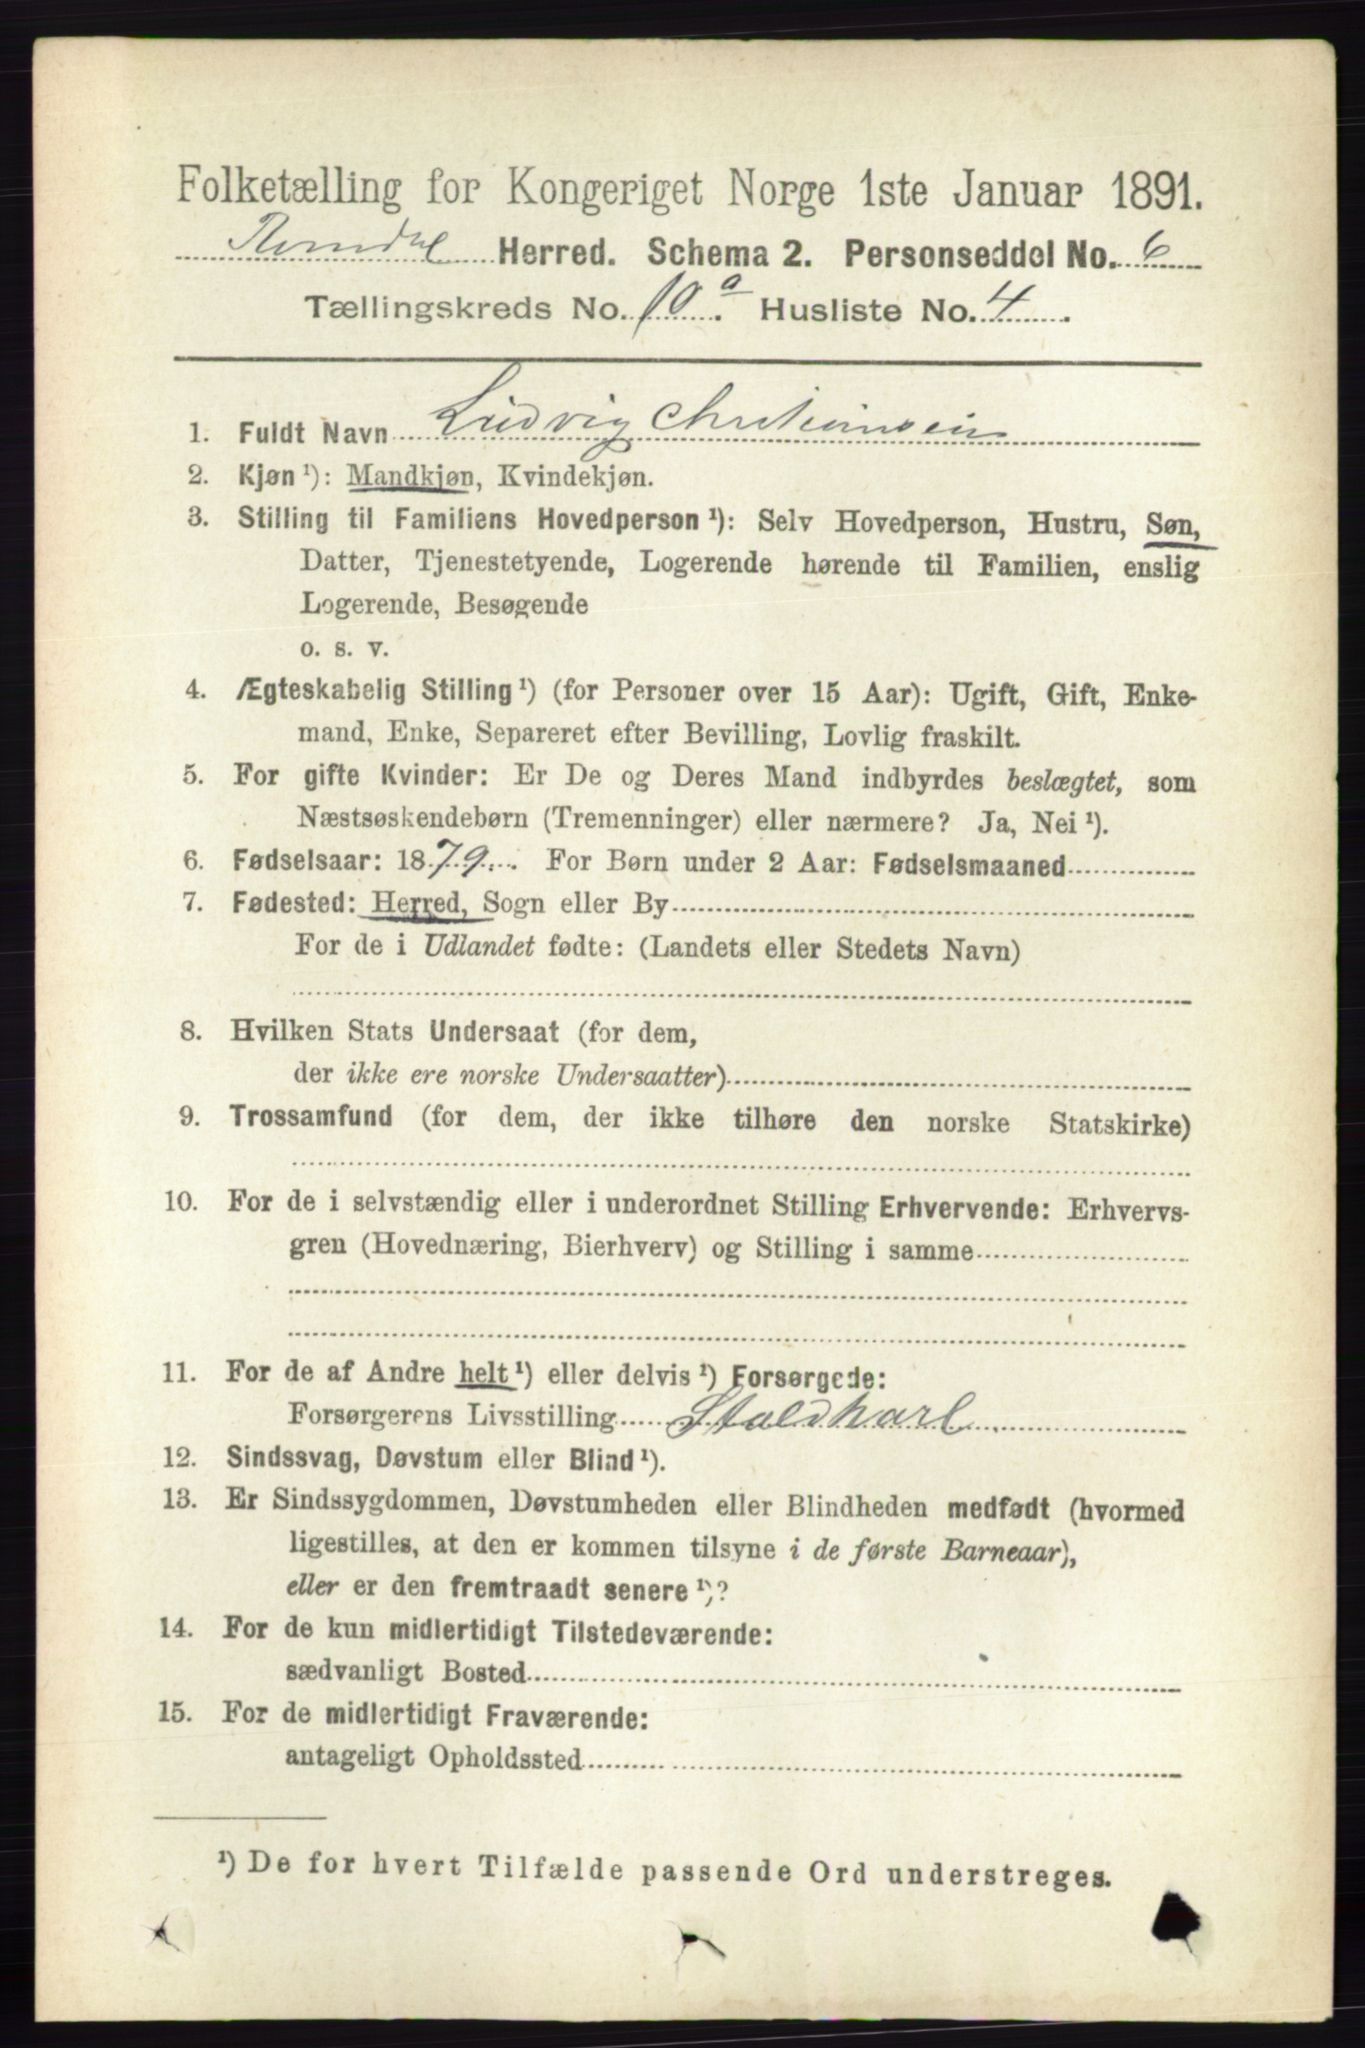 Folketælling for Kongeriget Norge 1ste Januar 1891.
Romedal Herred. Schema 2. Personseddel No. 6
Tællingskreds No. 10 a. Husliste No. 4.
1. Fuldt Navn Ludvig Christiansen
2. Kjøn ¹): Mandkjøn, Kvindekjøn.
3. Stilling til Familiens Hovedperson ¹): Selv Hovedperson, Hustru, Søn,
Datter, Tjenestetyende, Logerende hørende til Familien, enslig
Logerende, Besøgende
o. s. v.
4. Ægteskabelig Stilling ¹) (for Personer over 15 Aar): Ugift, Gift, Enke-
mand, Enke, Separeret efter Bevilling, Lovlig fraskilt.
5. For gifte Kvinder: Er De og Deres Mand indbyrdes beslægtet, som
Næstsøskendebørn (Tremenninger) eller nærmere? Ja, Nei ¹).
6. Fødselsaar: 1879. For Børn under 2 Aar: Fødselsmaaned
7. Fødested: Herred, Sogn eller By
For de i Udlandet fødte: (Landets eller Stedets Navn)
8. Hvilken Stats Undersaat (for dem,
der ikke ere norske Undersaatter)
9. Trossamfund (for dem, der ikke tilhøre den norske Statskirke)
10. For de i selvstændig eller i underordnet Stilling Erhvervende: Erhvervs-
gren (Hovednæring, Bierhverv) og Stilling i samme
11. For de af Andre helt ¹) eller delvis ¹) Forsørgede:
Forsørgerens Livsstilling Staldkarl
12. Sindssvag, Døvstum eller Blind ¹).
13. Er Sindssygdommen, Døvstumheden eller Blindheden medfødt (hvormed
ligestilles, at den er kommen tilsyne i de første Barneaar),
eller er den fremtraadt senere ¹)?
14. For de kun midlertidigt Tilstedeværende:
sædvanligt Bosted
15. For de midlertidigt Fraværende:
antageligt Opholdssted
¹) De for hvert Tilfælde passende Ord understreges.